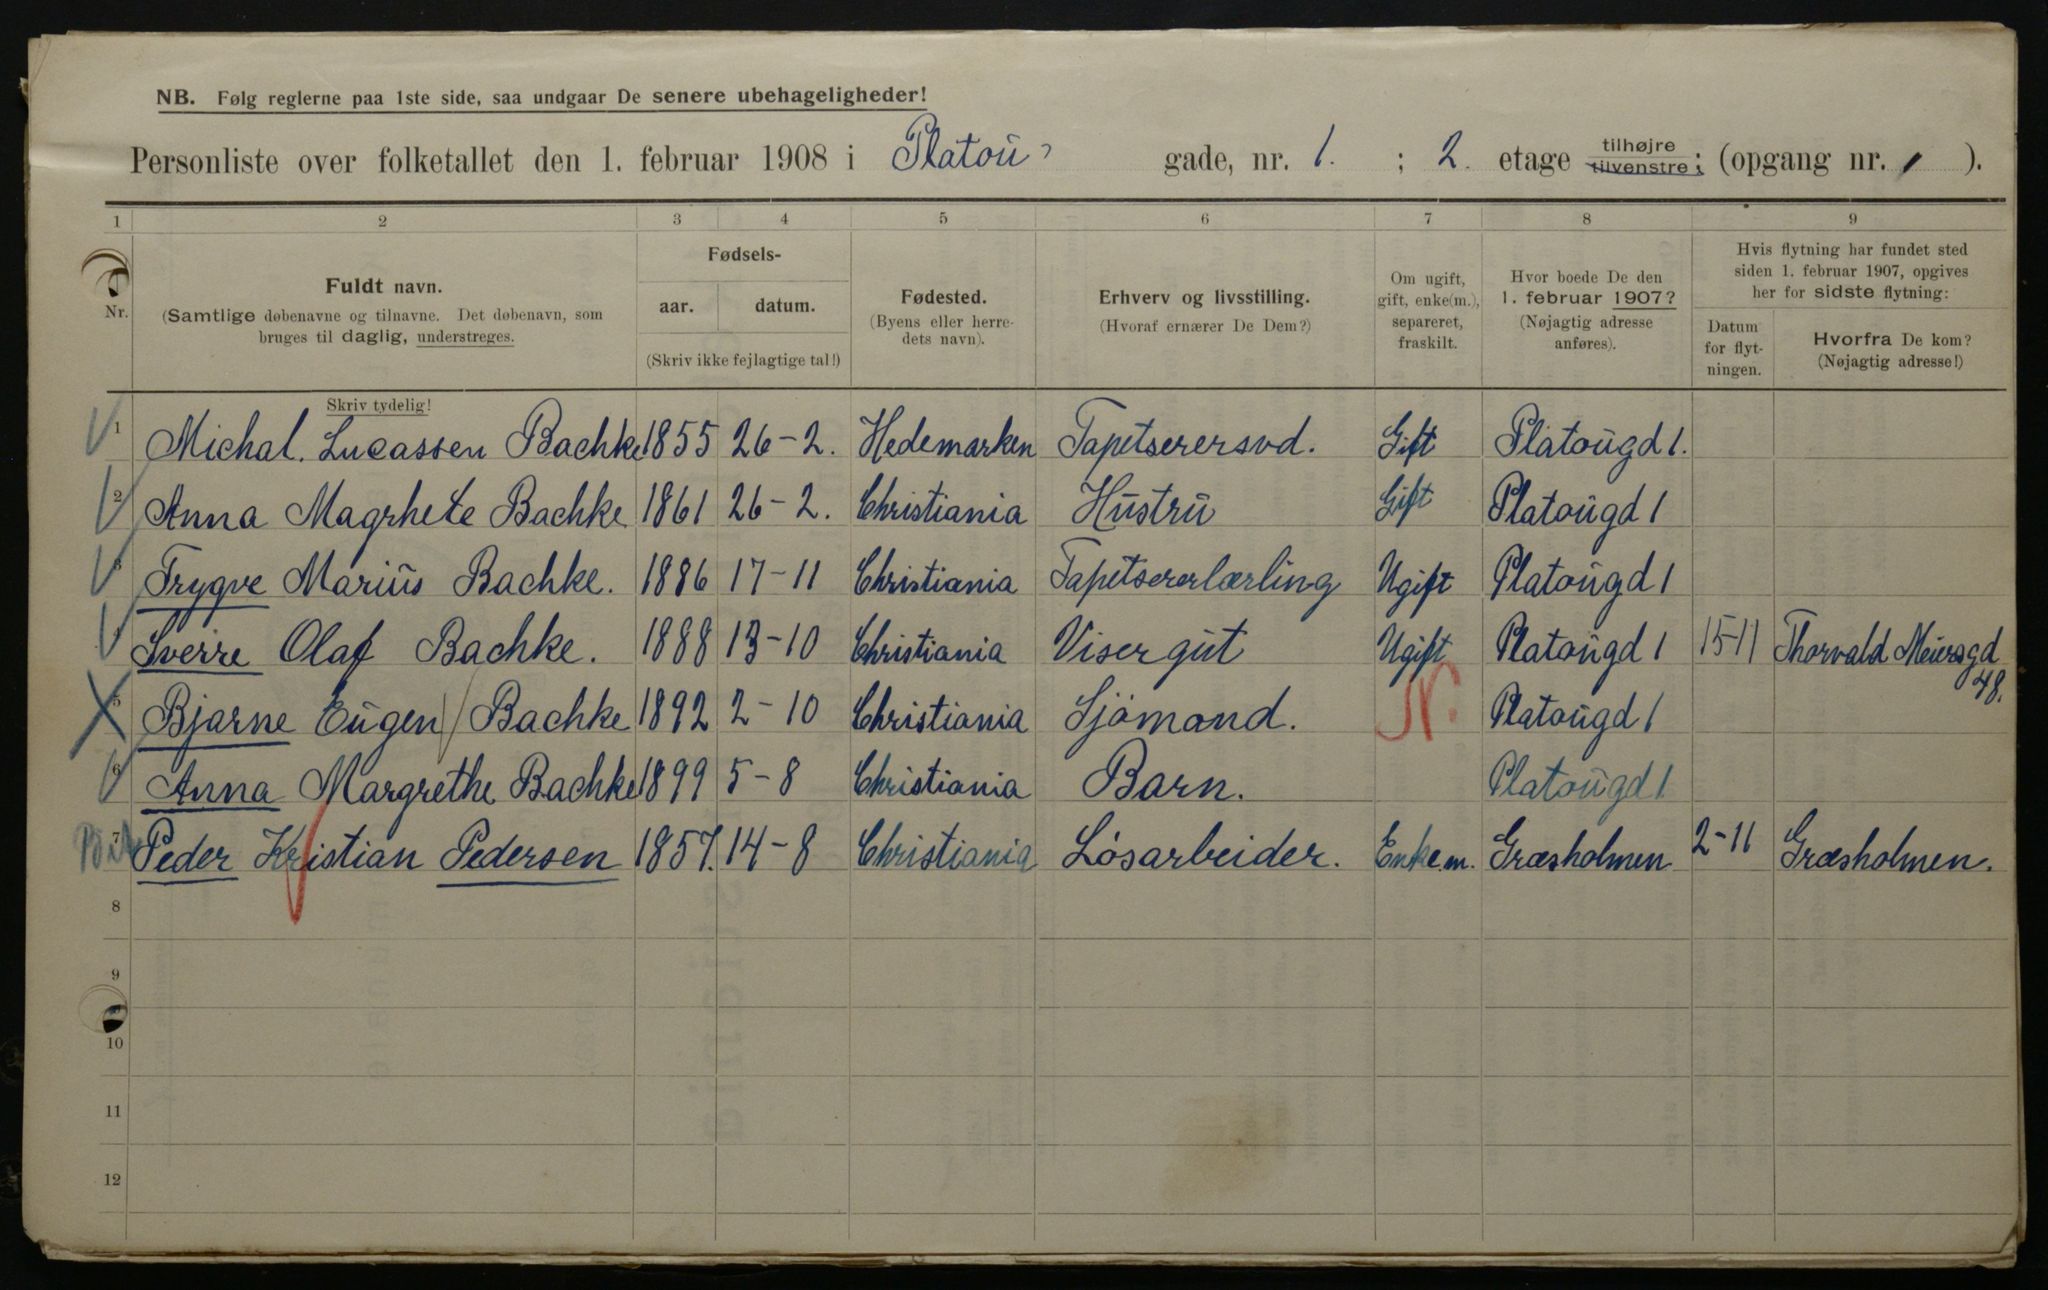 NB. Følg reglerne paa 1ste side, saa undgaar De senere ubehageligheder!
Personliste over folketallet den 1. februar 1908 i Platoú gade, nr. 1. ; 2. etage tilhøjre tilvenstre; (opgang nr. 1 ).
1 2 3 4 5 6 7 8 9
Nr.
Fuldt navn.
(Samtlige døbenavne og tilnavne. Det døbenavn, som
bruges til daglig, understreges.
Skriv tydelig!
Fødsels-
aar. datum.
(Skriv ikke fejlagtige tal!)
Fødested.
(Byens eller herre-
dets navn).
Erhverv og livsstilling.
(Hvoraf ernærer De Dem?)
Om ugift,
gift, enke(m.),
separeret,
fraskilt.
Hvor boede De den
1. februar 1907?
(Nøjagtig adresse
anføres).
Hvis flytning har fundet sted
siden 1. februar 1907, opgives
her for sidste flytning:
Datum
for flyt-
ningen.
Hvorfra De kom?
(Nøjagtig adresse!)
1 Michal. Lucassen Bachke 1855 26-2. Hedemarken Tapetserersvd. Gift Platoúgd 1.
2 Anna Magrhete Bachke 1861 26-2. Christiania Hústrú Gift Platoúgd 1
3 Trygve Mariús Bachke. 1886 17-11 Christiania Tapetsererlærling Ugift Platoúgd 1
4 Sverre Olaf Bachke. 1888 13-10 Christiania Visergút Ugift Platoúgd 1 15-11 Thorvald Meiersgd
48.
5 Bjarne Eúgen Bachke 1892 2-10 Christiania Sjömand. N. Platoúgd 1
6 Anna Margrethe Bachke 1899 5-8 Christiania Barn. Platoúgd 1
7 Peder Kristian Pedersen 1857. 14-8 Christiania Lósarbeider. Enke.m. Græsholmen 2-11 Græsholmen.
8
9
10
11
12